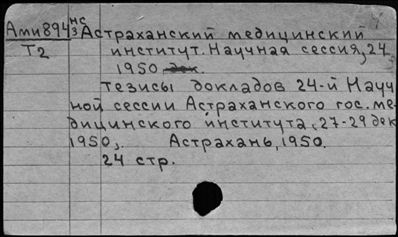 Ами894 нс
3 Астраханский медицинский
Т2 институт. Научная сессия, 24
1950 дек.
тезисы докладов 24-й Науч
ной сессии Астраханского гос. ме-
дицинского института, 27-29 дек
1950,. Астрахань, 1950.
24 стр.